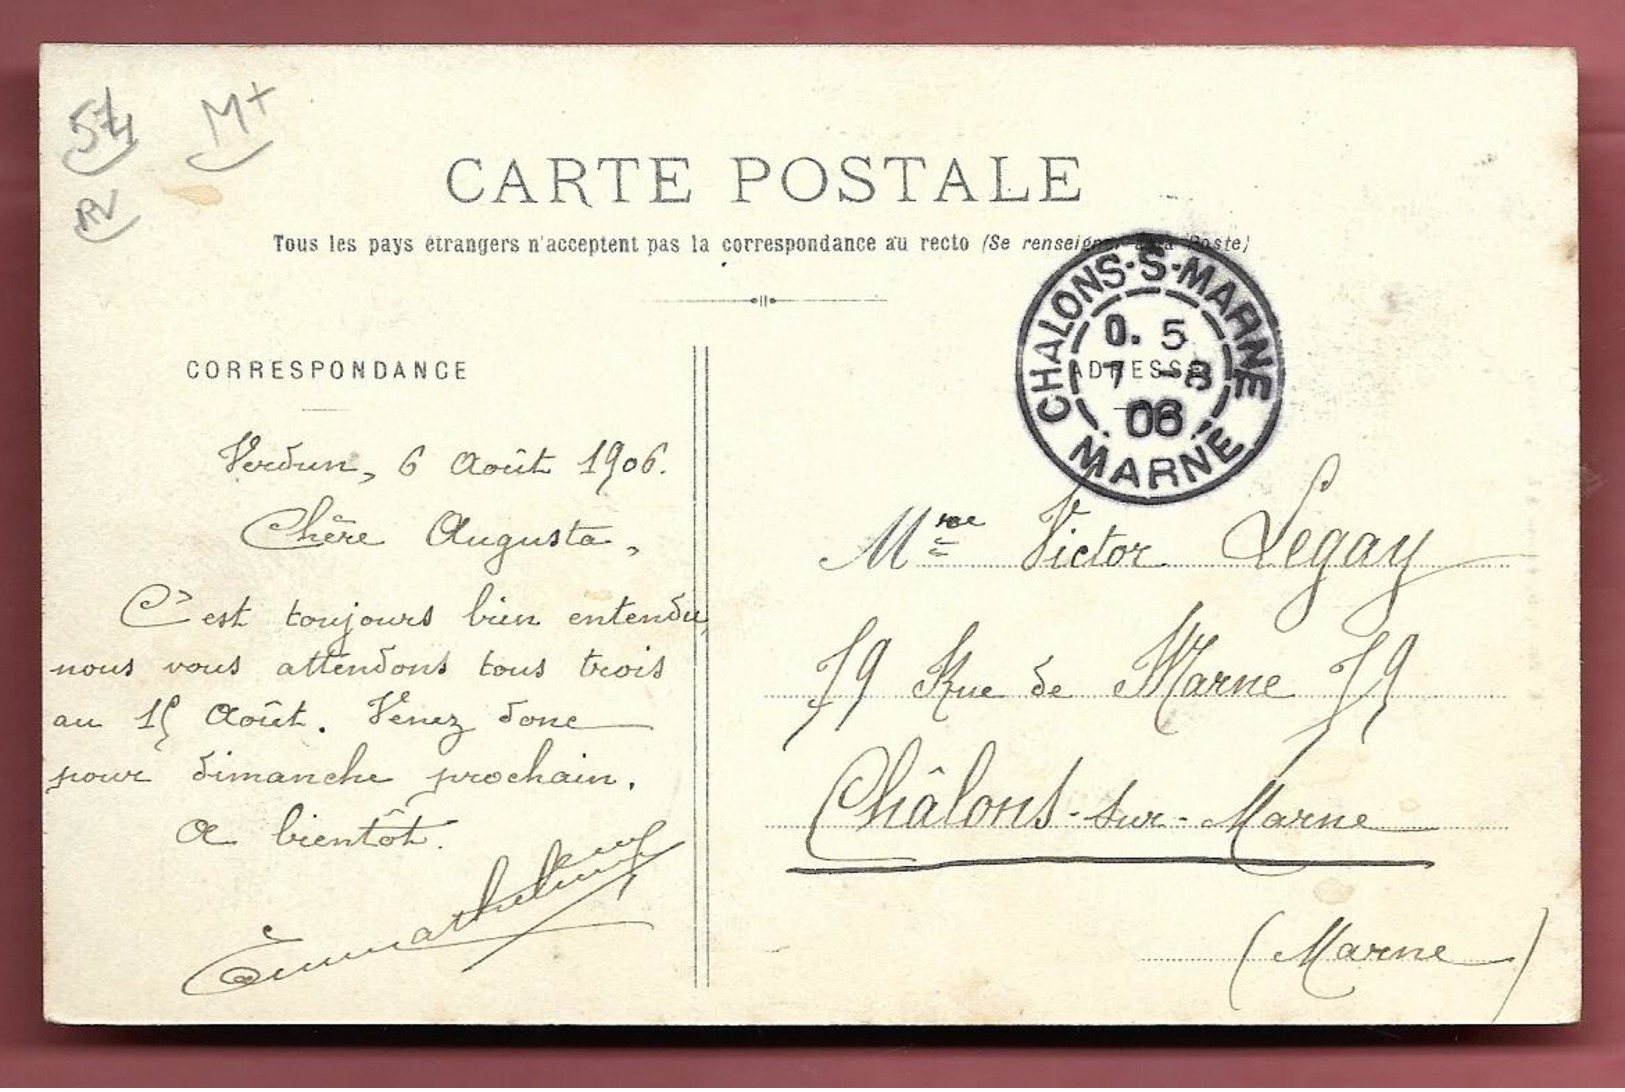 54
M+
RV
CARTE POSTALE
Tous les pays étrangers n'acceptent pas la correspondance au recto (Se renseigner à la Poste)
CORRESPONDANCE
ADRESSE
CHALONS-S-MARNE
0. 5
7 -8
06
MARNE
Verdun, 6 Août 1906.
Chère Augusta,
C'est toujours bien entendu,
nous vous attendons tous trois
au 15 Août. Venez donc
pour dimanche prochain.
A bientôt.
Mme Victor Legay
79 Rue de Marne 79
Châlons-sur-Marne
(Marne)